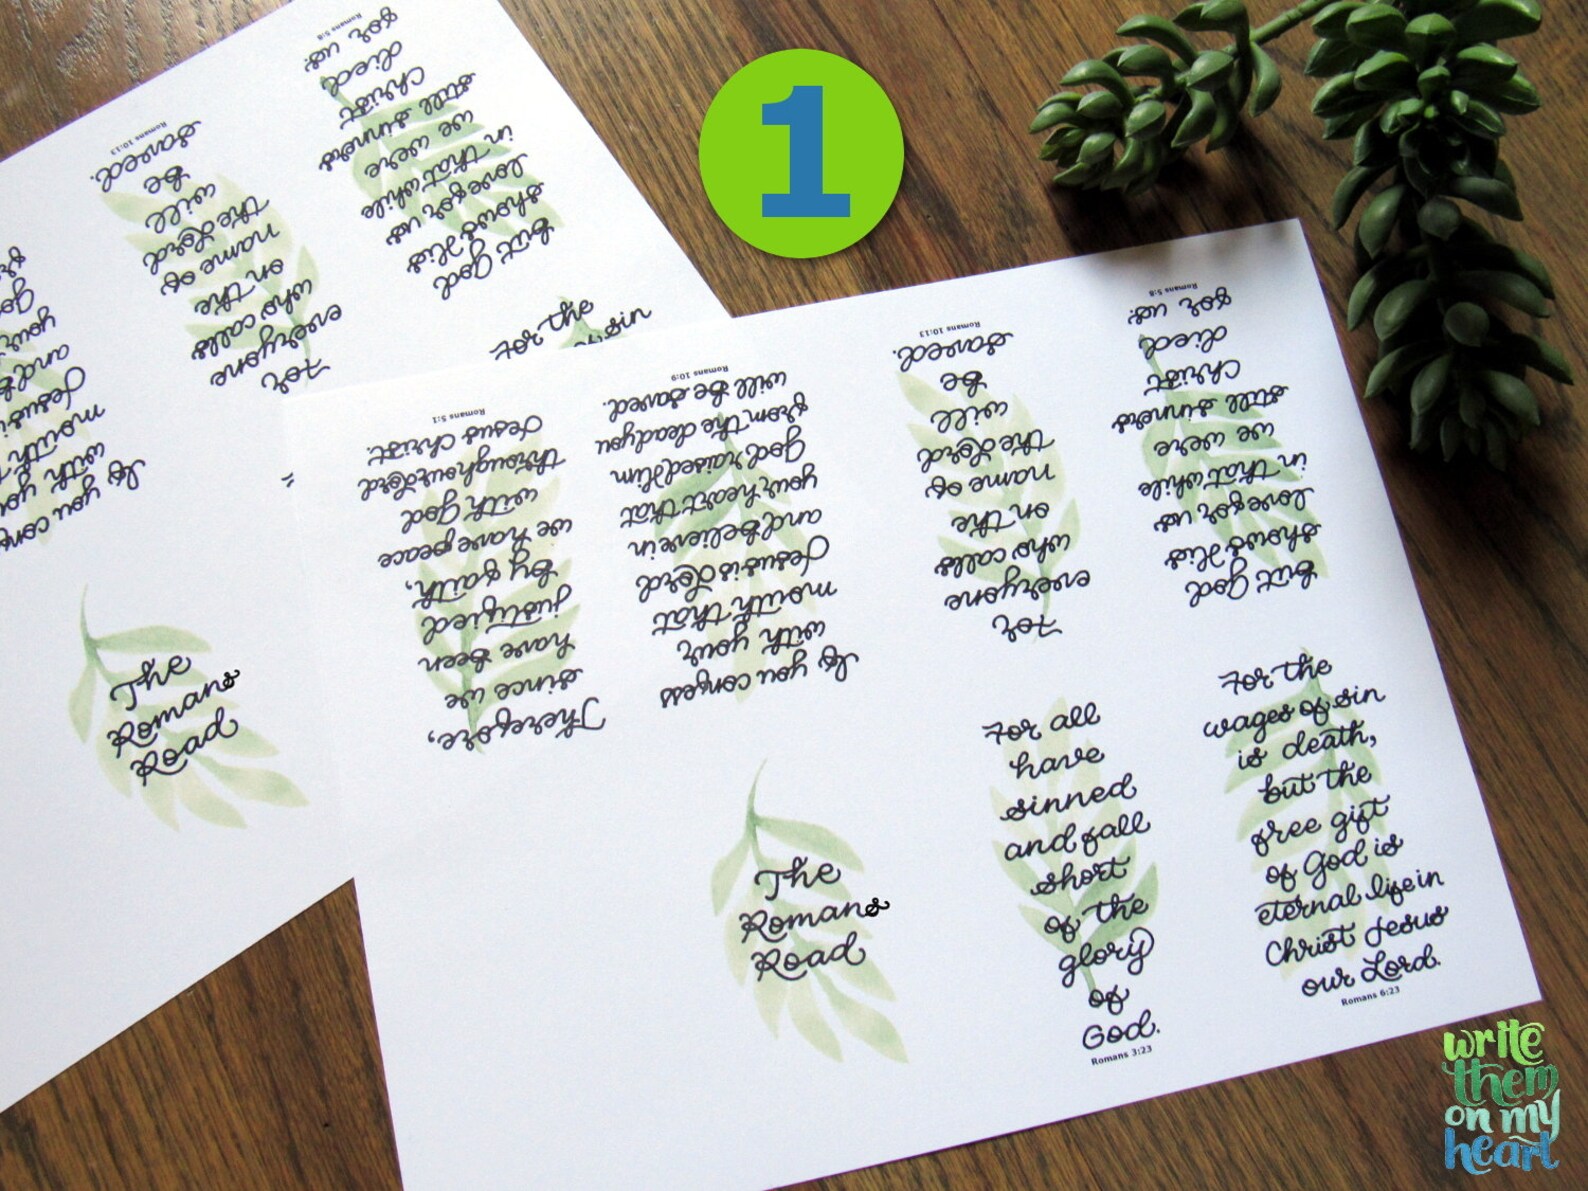 1
Romans 5:8
But God
shows His
love for us
in that while
we were
still sinners
Christ
died
for us.
Romans 10:13
For
everyone
who calls
on the
name of
the Lord
will
be
saved.
If you
with
mouth
Jesus
and
your
The
Romans
Road
For the
sin
Therefore,
since we
have been
justified
by faith,
we have peace
with God
through our Lord
Jesus Christ.
Romans 5:1
If you confess
with your
mouth that
Jesus is Lord
and believe in
your heart that
God raised Him
from the dead you
will be saved.
Romans 10:9
For
everyone
who calls
on the
name of
the Lord
will
be
saved.
Romans 10:13
But God
shows His
love for us
in that while
we were
still sinners
Christ
died
for us.
Romans 5:8
The
Romans
Road
For all
have
sinned
and fall
short
of the
glory
of
God.
Romans 3:23
For the
wages of sin
is death,
but the
free gift
of God is
eternal life in
Christ Jesus
our Lord.
Romans 6:23
write
them
on my
heart